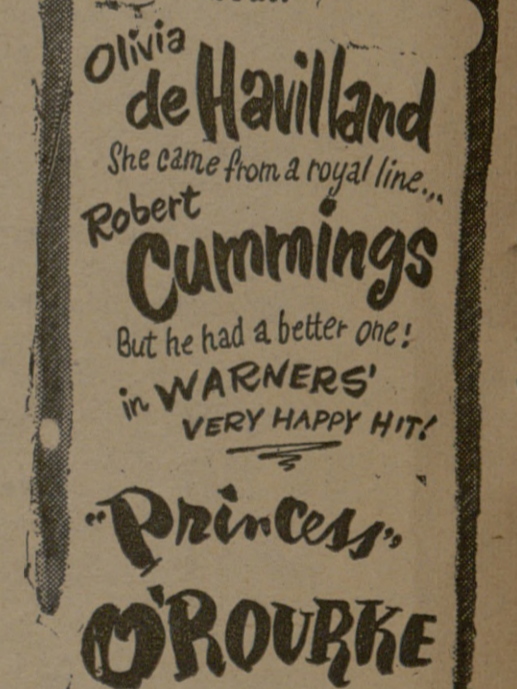 Olivia
de Havilland
She came from a royal line...
Robert
Cummings
But he had a better one!
in WARNERS'
VERY HAPPY HIT!
"Princess"
O'ROURKE